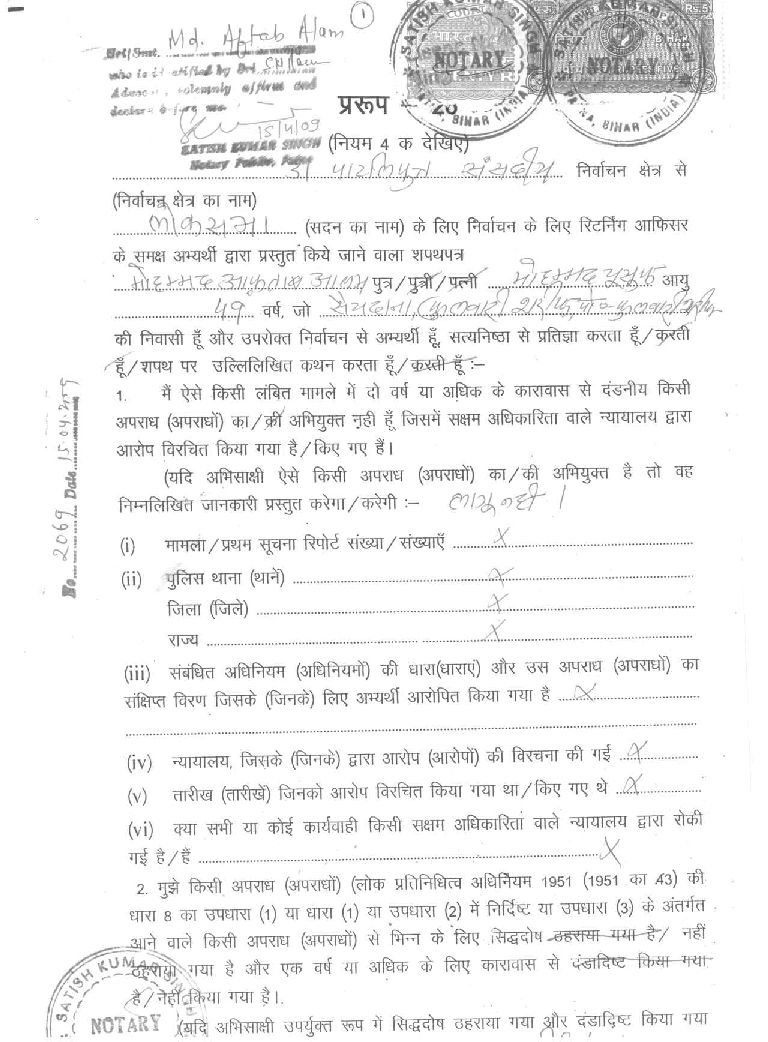 1
Md. Aftab Alam
Sri/Smt.
who is identified by Sri
Advocate, solemnly affirms and
declare before me
15/4/09
SATISH KUMAR SINGH
Notary Public, Patna
SATISH KUMAR SINGH
NOTARY
BIHAR (INDIA)
SATISH KUMAR SINGH
NOTARY
PATNA, BIHAR (INDIA)
Rs.5
प्ररूप
(नियम 4 क देखिए)
पाटलिपुत्र संसदीय निर्वाचन क्षेत्र से
(निर्वाचन क्षेत्र का नाम)
लोकसभा (सदन का नाम) के लिए निर्वाचन के लिए रिटर्निंग आफिसर
के समक्ष अभ्यर्थी द्वारा प्रस्तुत किये जाने वाला शपथपत्र
मोहम्मद आफताब आलम पुत्र/पुत्री/पत्नी मोहम्मद युसुफ आयु
49 वर्ष, जो सैयदाना, फुलवारी शरीफ, पो०-फुलवारी शरीफ
की निवासी हूँ और उपरोक्त निर्वाचन से अभ्यर्थी हूँ, सत्यनिष्ठा से प्रतिज्ञा करता हूँ/करती
हूँ/शपथ पर उल्लिलिखित कथन करता हूँ/करती हूँ :–
1. मैं ऐसे किसी लंबित मामले में दो वर्ष या अधिक के कारावास से दंडनीय किसी
अपराध (अपराधों) का/की अभियुक्त नही हूँ जिसमें सक्षम अधिकारिता वाले न्यायालय द्वारा
आरोप विरचित किया गया है/किए गए हैं।
(यदि अभिसाक्षी ऐसे किसी अपराध (अपराधों) का/की अभियुक्त है तो वह
निम्नलिखित जानकारी प्रस्तुत करेगा/करेगी :– लागू नहीं।
(i) मामला/प्रथम सूचना रिपोर्ट संख्या/संख्याएँ X
(ii) पुलिस थाना (थाने) X
जिला (जिले) X
राज्य X
(iii) संबंधित अधिनियम (अधिनियमों) की धारा(धाराएं) और उस अपराध (अपराधों) का
संक्षिप्त विरण जिसके (जिनके) लिए अभ्यर्थी आरोपित किया गया है X
(iv) न्यायालय, जिसके (जिनके) द्वारा आरोप (आरोपों) की विरचना की गई X
(v) तारीख (तारीखें) जिनको आरोप विरचित किया गया था/किए गए थे X
(vi) क्या सभी या कोई कार्यवाही किसी सक्षम अधिकारिता वाले न्यायालय द्वारा रोकी
गई है/हैं X
2. मुझे किसी अपराध (अपराधों) (लोक प्रतिनिधित्व अधिनियम 1951 (1951 का 43) की
धारा 8 का उपधारा (1) या धारा (1) या उपधारा (2) में निर्दिष्ट या उपधारा (3) के अंतर्गत
आने वाले किसी अपराध (अपराधों) से भिन्न के लिए सिद्धदोष ठहराया गया है/ नहीं
ठहराया गया है और एक वर्ष या अधिक के लिए कारावास से दंडादिष्ट किया गया
है/नहीं किया गया है।
(यदि अभिसाक्षी उपर्युक्त रूप में सिद्धदोष ठहराया गया और दंडादिष्ट किया गया
SATISH KUMAR SINGH
NOTARY
No. 2069 Date 15.04.2009